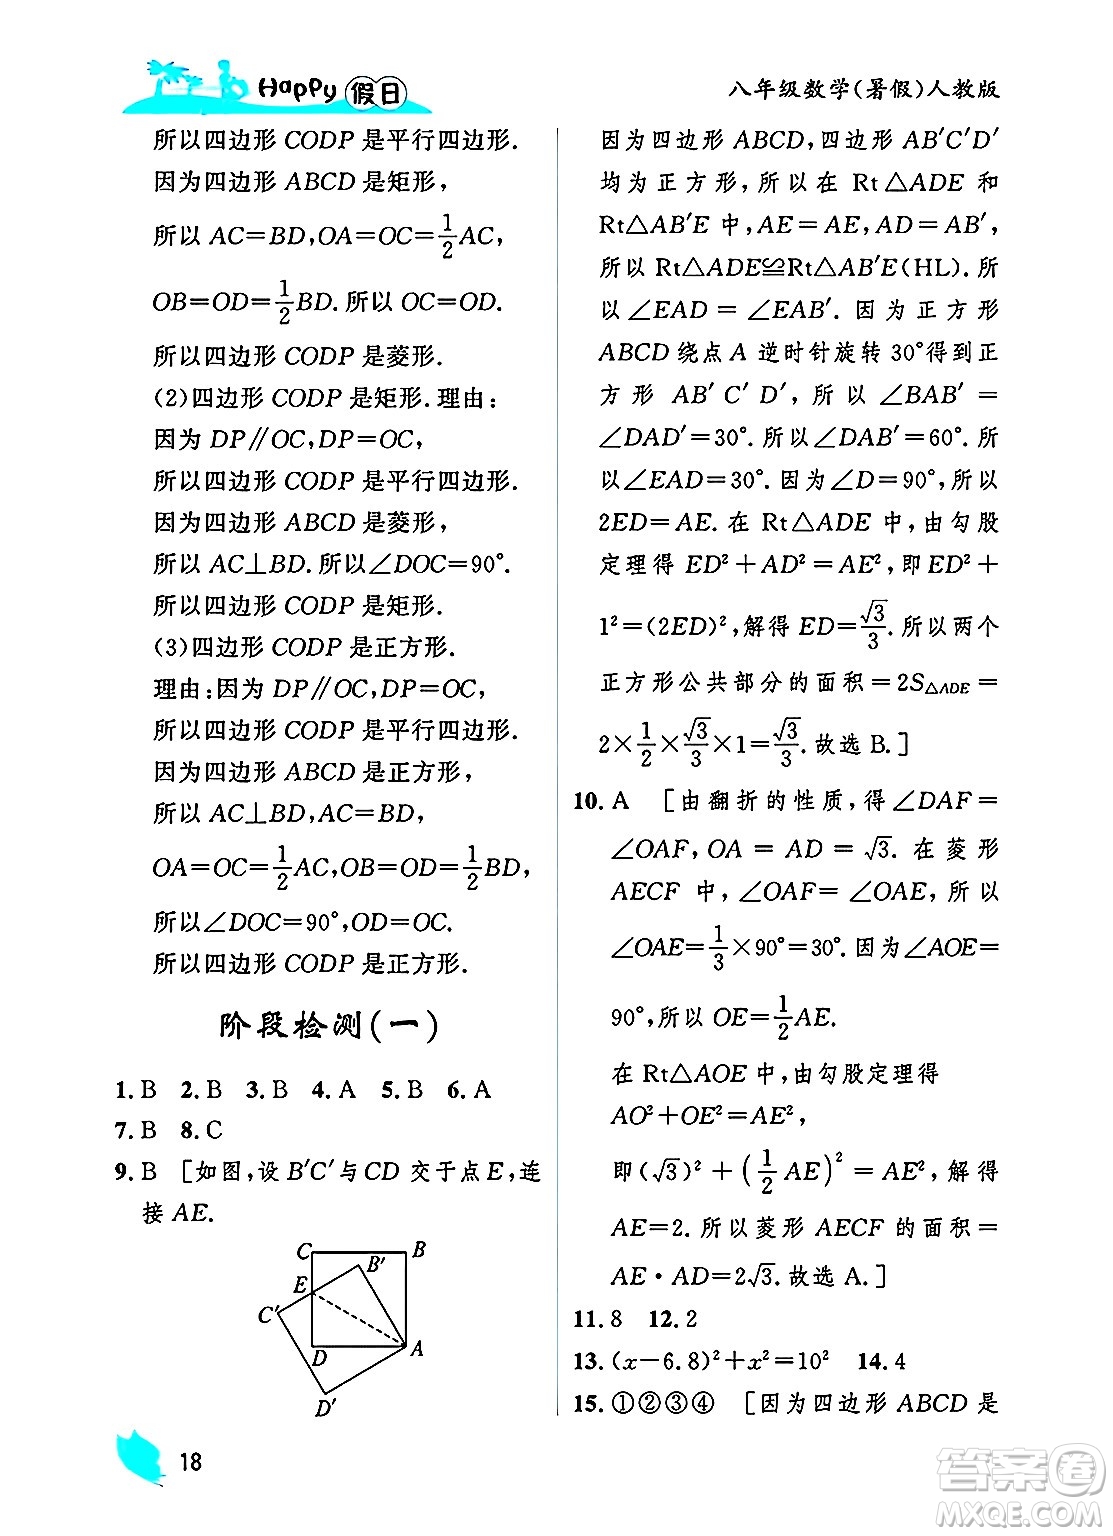 Happy假日
八年级数学(暑假)人教版
所以四边形 CODP 是平行四边形.
因为四边形 ABCD 是矩形，
所以 AC=BD,OA=OC=1/2AC,
OB=OD=1/2BD.所以 OC=OD.
所以四边形 CODP 是菱形.
(2)四边形 CODP 是矩形.理由：
因为 DP∥OC,DP=OC,
所以四边形 CODP 是平行四边形.
因为四边形 ABCD 是菱形，
所以 AC⊥BD.所以∠DOC=90°.
所以四边形 CODP 是矩形.
(3)四边形 CODP 是正方形.
理由：因为 DP∥OC,DP=OC,
所以四边形 CODP 是平行四边形.
因为四边形 ABCD 是正方形，
所以 AC⊥BD,AC=BD,
OA=OC=1/2AC,OB=OD=1/2BD,
所以∠DOC=90°,OD=OC.
所以四边形 CODP 是正方形.
阶段检测(一)
1. B 2. B 3. B 4. A 5. B 6. A
7. B 8. C
9. B [如图,设 B′C′与 CD 交于点 E,连
接 AE.
C B
B′
E
C′
D A
D′
因为四边形 ABCD,四边形 AB′C′D′
均为正方形,所以在 Rt△ADE 和
Rt△AB′E 中,AE=AE,AD=AB′,
所以 Rt△ADE≌Rt△AB′E(HL).所
以∠EAD=∠EAB′.因为正方形
ABCD 绕点 A 逆时针旋转 30°得到正
方形 AB′C′D′,所以∠BAB′=
∠DAD′=30°.所以∠DAB′=60°.所
以∠EAD=30°.因为∠D=90°,所以
2ED=AE.在 Rt△ADE 中,由勾股
定理得 ED²+AD²=AE²,即 ED²+
1²=(2ED)²,解得 ED=√3/3.所以两个
正方形公共部分的面积=2S△ADE=
2×1/2×√3/3×1=√3/3.故选 B.]
10. A [由翻折的性质,得∠DAF=
∠OAF,OA=AD=√3.在菱形
AECF 中,∠OAF=∠OAE,所以
∠OAE=1/3×90°=30°.因为∠AOE=
90°,所以 OE=1/2AE.
在 Rt△AOE 中,由勾股定理得
AO²+OE²=AE²,
即(√3)²+(1/2AE)²=AE²,解得
AE=2.所以菱形 AECF 的面积=
AE·AD=2√3.故选 A.]
11. 8 12. 2
13. (x-6.8)²+x²=10² 14. 4
15. ①②③④ [因为四边形 ABCD 是
18
答案圈
MXQE.COM